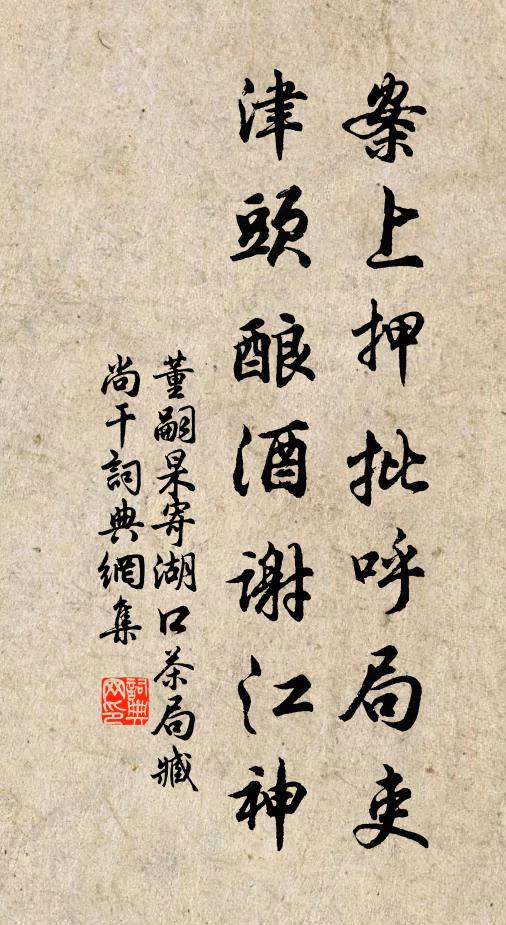 案上押批呼局吏
津頭酿酒谢江神
董嗣杲寄湖口茶局臧
尚干詞典網集
詞典网印